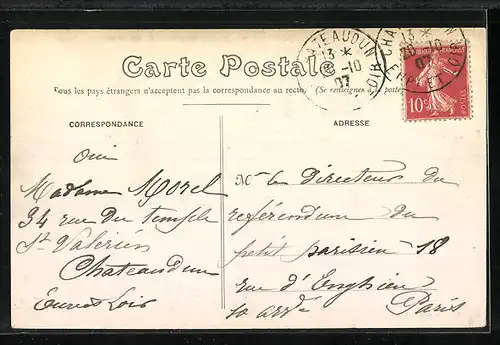 Carte Postale
Tous les pays étrangers n'acceptent pas la correspondance au recto. (Se renseigner à la poste
CORRESPONDANCE
oui
Madame Morel
34 rue du temple
St Valérien
Chateaudun
Eure et Loir
ADRESSE
Mr le Directeur du
referendum du
petit parisien - 18
rue d'Enghien
10 arrdt
Paris
CHATEAUDUN
13 *
-10
07
LOIR
CHA
13 *
10
07
EURE ET LOIR
10c
POSTES